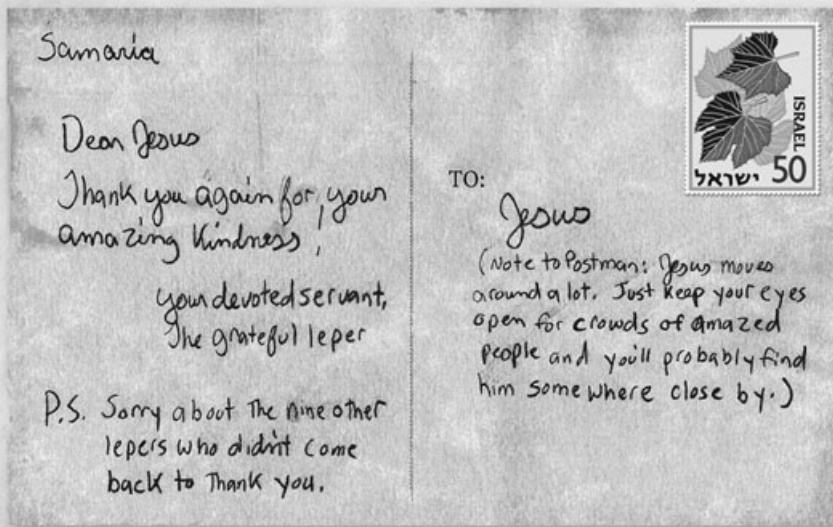 Samaria
Dear Jesus
Thank you again for, your
amazing kindness!
your devoted servant,
The grateful leper
P.S. Sorry about the nine other
lepers who didn't come
back to Thank you.
ISRAEL
ישראל 50
TO:
Jesus
(Note to Postman: Jesus moves
around a lot. Just keep your eyes
open for crowds of amazed
people and you'll probably find
him somewhere close by.)